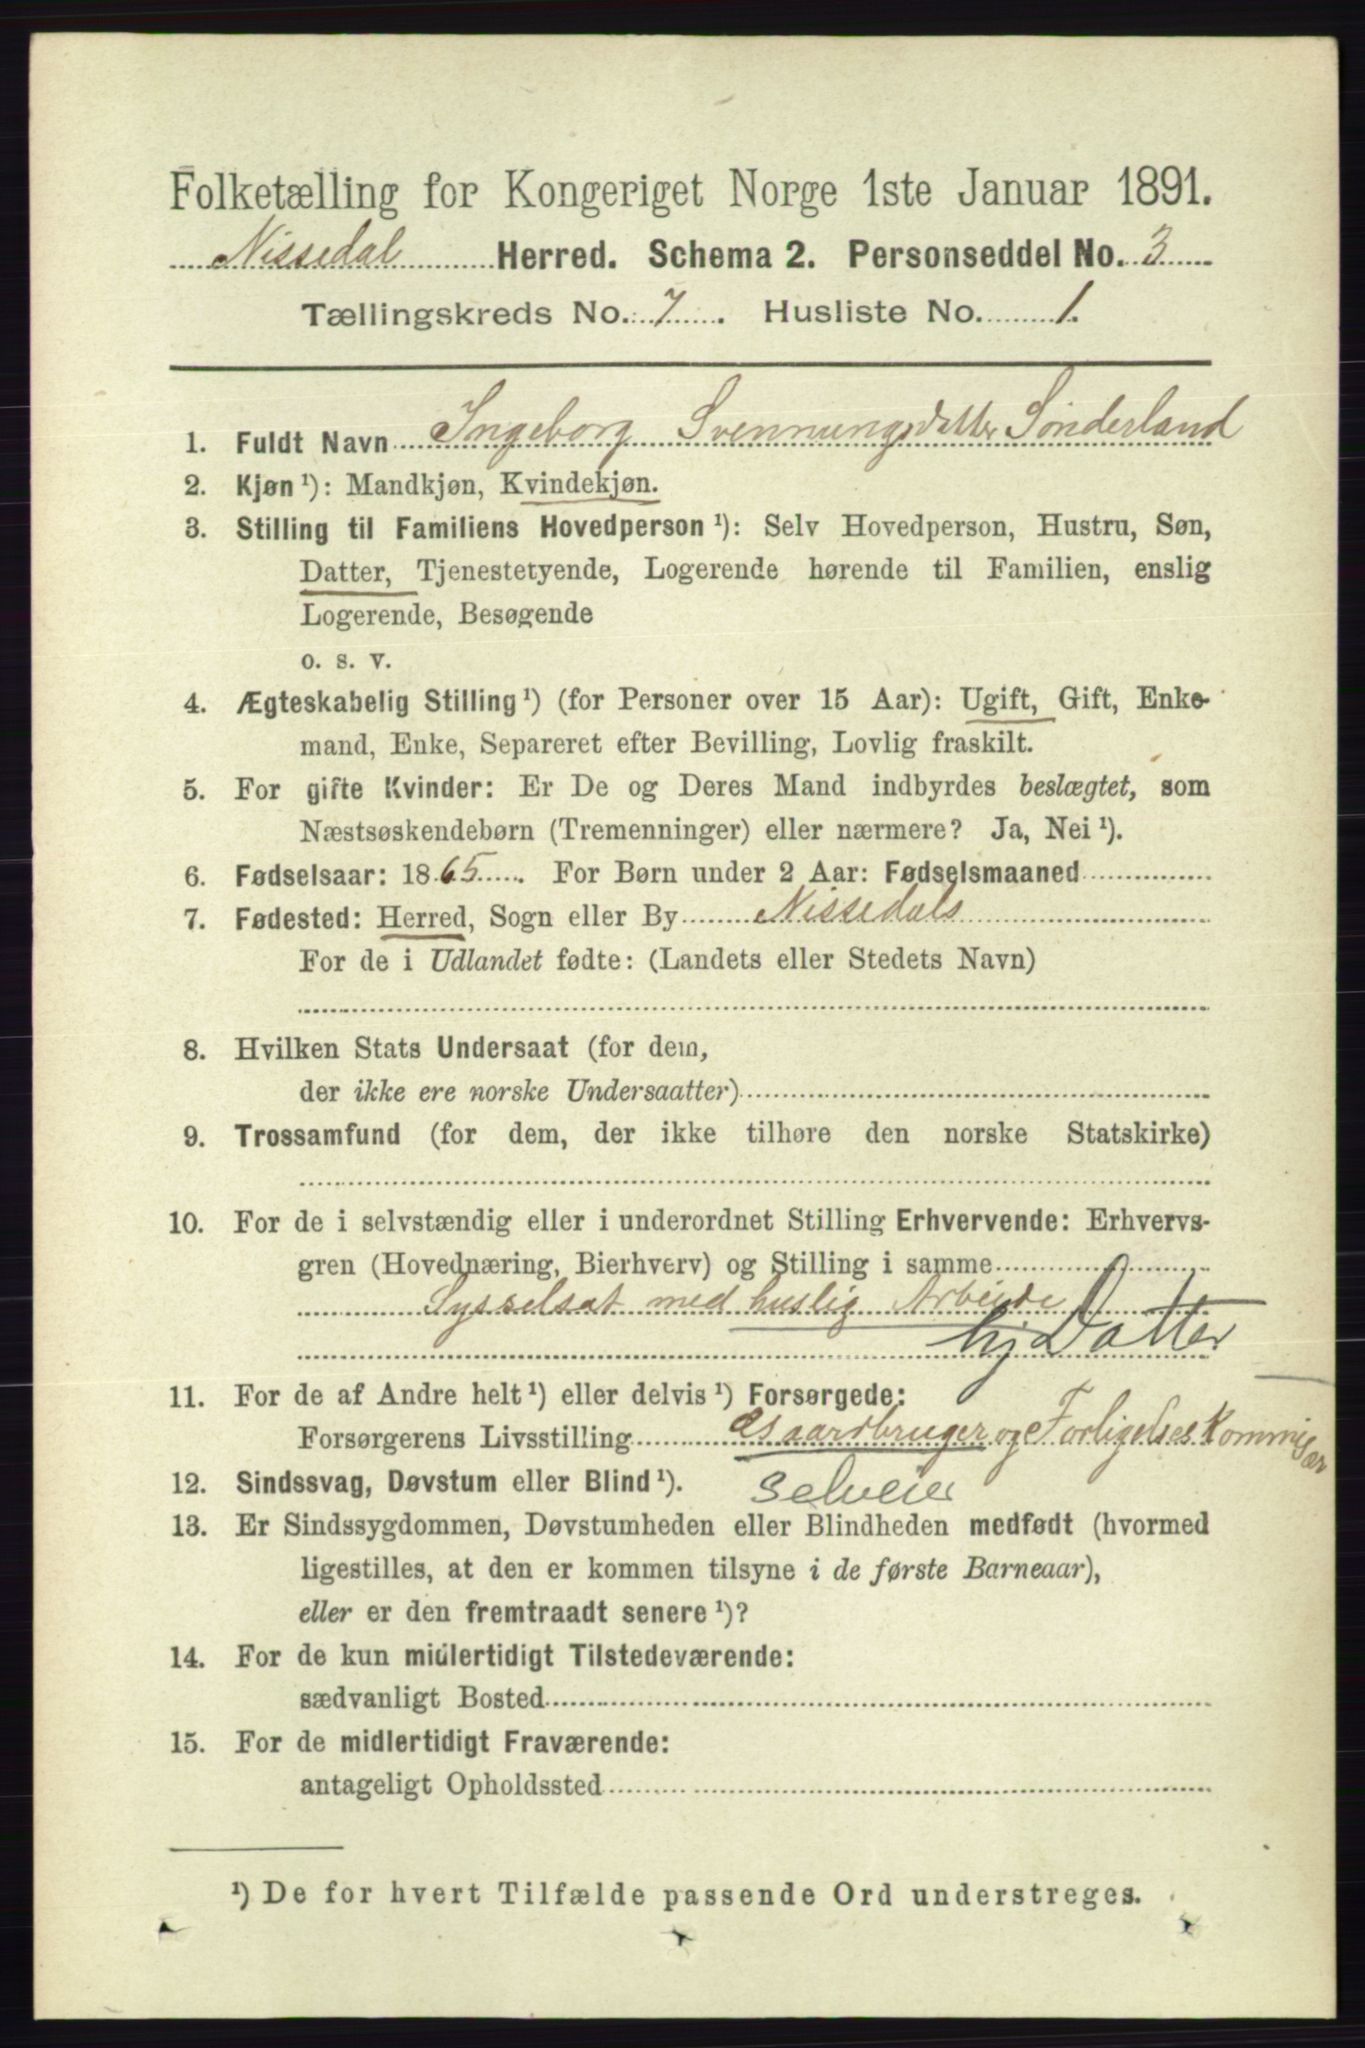 Folketælling for Kongeriget Norge 1ste Januar 1891.
Nissedal Herred. Schema 2. Personseddel No. 3
Tællingskreds No. 7. Husliste No. 1.
1. Fuldt Navn Ingeborg Svenningsdatter Sønderland
2. Kjøn ¹): Mandkjøn, Kvindekjøn.
3. Stilling til Familiens Hovedperson ¹): Selv Hovedperson, Hustru, Søn,
Datter, Tjenestetyende, Logerende hørende til Familien, enslig
Logerende, Besøgende
o. s. v.
4. Ægteskabelig Stilling ¹) (for Personer over 15 Aar): Ugift, Gift, Enke-
mand, Enke, Separeret efter Bevilling, Lovlig fraskilt.
5. For gifte Kvinder: Er De og Deres Mand indbyrdes beslægtet, som
Næstsøskendebørn (Tremenninger) eller nærmere? Ja, Nei ¹).
6. Fødselsaar: 1865. For Børn under 2 Aar: Fødselsmaaned
7. Fødested: Herred, Sogn eller By Nissedals
For de i Udlandet fødte: (Landets eller Stedets Navn)
8. Hvilken Stats Undersaat (for dem,
der ikke ere norske Undersaatter)
9. Trossamfund (for dem, der ikke tilhøre den norske Statskirke)
10. For de i selvstændig eller i underordnet Stilling Erhvervende: Erhvervs-
gren (Hovednæring, Bierhverv) og Stilling i samme
Sysselsat med huslig Arbeide
hj Datter
11. For de af Andre helt ¹) eller delvis ¹) Forsørgede:
Forsørgerens Livsstilling Gaardbruger og Forligelses Kommisær
12. Sindssvag, Døvstum eller Blind ¹). Selveier
13. Er Sindssygdommen, Døvstumheden eller Blindheden medfødt (hvormed
ligestilles, at den er kommen tilsyne i de første Barneaar),
eller er den fremtraadt senere ¹)?
14. For de kun midlertidigt Tilstedeværende:
sædvanligt Bosted
15. For de midlertidigt Fraværende:
antageligt Opholdssted
¹) De for hvert Tilfælde passende Ord understreges.